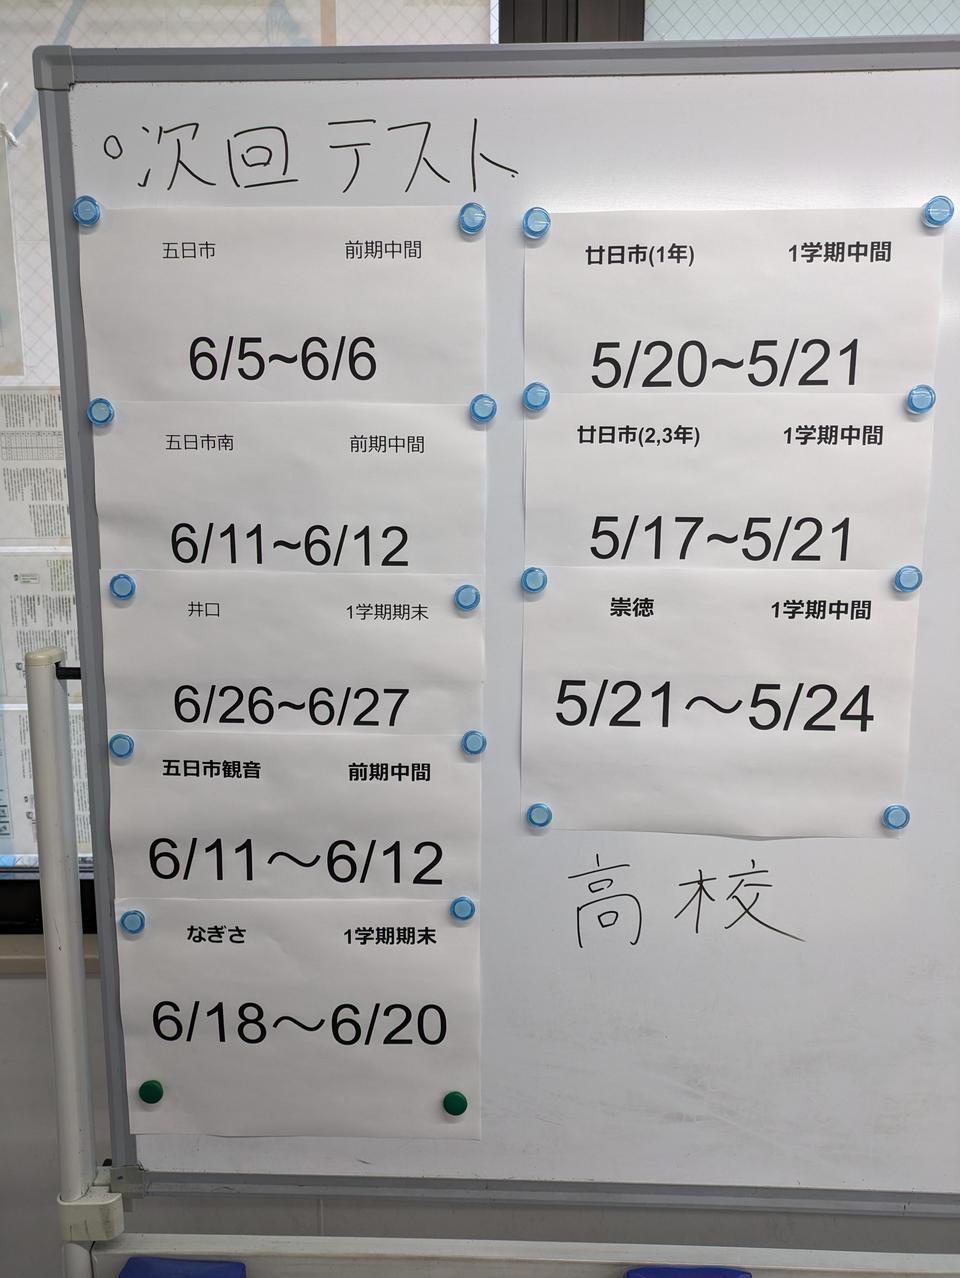 ○次回テスト
五日市 前期中間
6/5~6/6
五日市南 前期中間
6/11~6/12
井口 1学期期末
6/26~6/27
五日市観音 前期中間
6/11～6/12
なぎさ 1学期期末
6/18～6/20
廿日市(1年) 1学期中間
5/20~5/21
廿日市(2,3年) 1学期中間
5/17~5/21
崇徳 1学期中間
5/21～5/24
高校